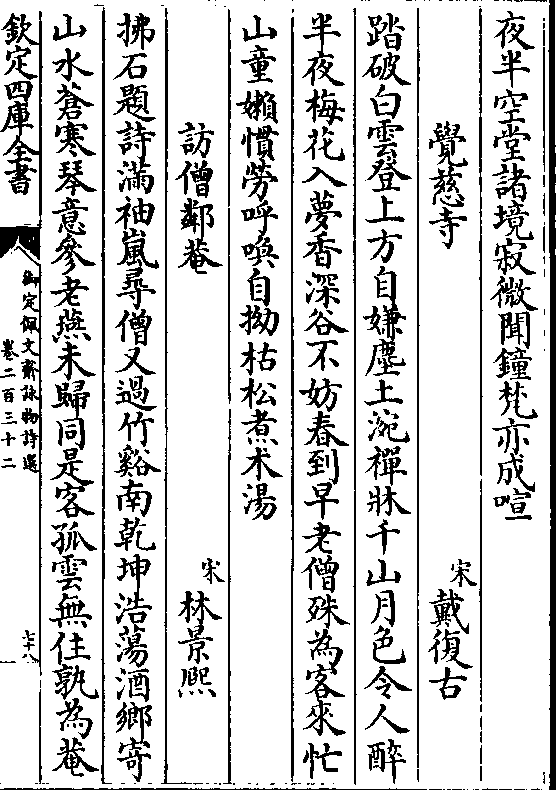 夜半空堂諸境寂微聞鐘梵亦成喧
覺慈寺 宋 戴復古
踏破白雲登上方自嫌塵土涴禪牀千山月色令人醉
半夜梅花入夢香深谷不妨春到早老僧殊為客來忙
山童嬾慣勞呼喚自拗枯松煮术湯
訪僧鄰菴 宋 林景熈
拂石題詩滿袖嵐尋僧又過竹谿南乾坤浩蕩酒鄉寄
山水蒼寒琴意參老燕未歸同是客孤雲無住孰為菴
欽定四庫全書
御定佩文齋詠物詩選
卷二百三十二
七十八